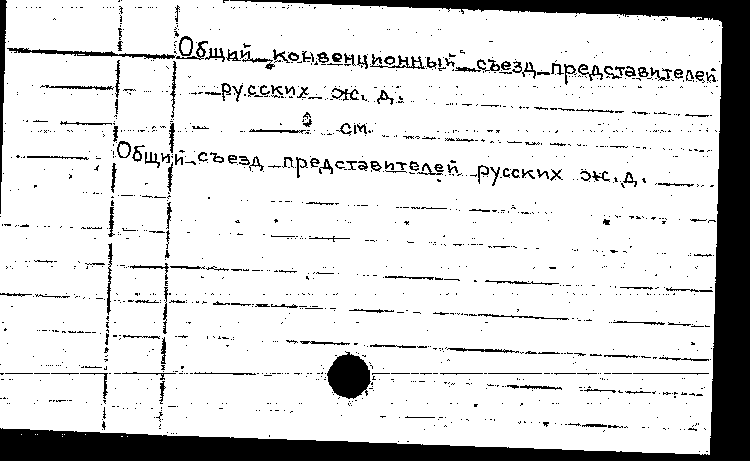 Общий конвенционный съезд представителей
русских ж. д.
см.
Общий съезд представителей русских ж. д.